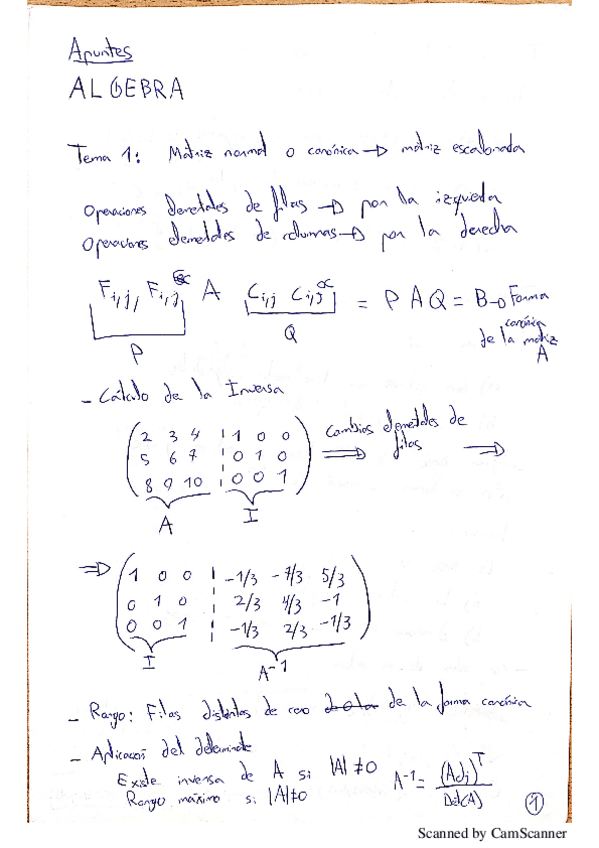 Apuntes
ALGEBRA
Tema 1: Matriz normal o canónica → matriz escalonada
Operaciones elementales de filas → por la izquierda
Operaciones elementales de columnas → por la derecha
F i,j, F i,j ∝ A C i,j C i,j ∝ = P A Q = B → Forma
canónica
P Q de la matriz
A
- Cálculo de la Inversa
2 3 4 | 1 0 0 Cambios elementales de
5 6 7 | 0 1 0 ⇒ filas ⇒
8 9 10 | 0 0 1
A I
⇒ 1 0 0 | -1/3 -7/3 5/3
0 1 0 | 2/3 4/3 -1
0 0 1 | -1/3 2/3 -1/3
I A-1
- Rango: Filas distintas de cero de la forma canónica
- Aplicación del determinante
Existe inversa de A si |A| ≠ 0 A-1 = (Adj)T / Det(A)
Rango máximo si |A| ≠ 0 1
Scanned by CamScanner